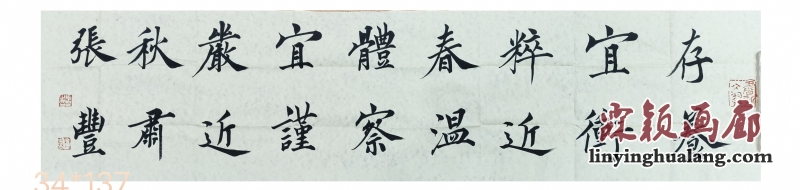 存養
宜衝
粹近
春温
體察
宜謹
嚴近
秋肅
張豐
霖颖画廊
linyinghualang.com
34*137